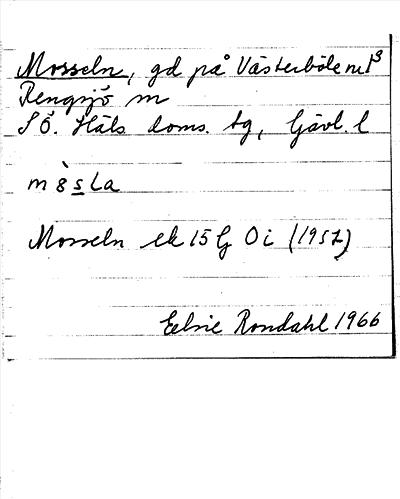 Mosseln, gd på Västerböle nr 1³
Rengsjö sn
S Ö. Häls doms. tg, Gävl. l
Mosseln ek 15 G Ö i (1957)
Elsie Rondahl 1966